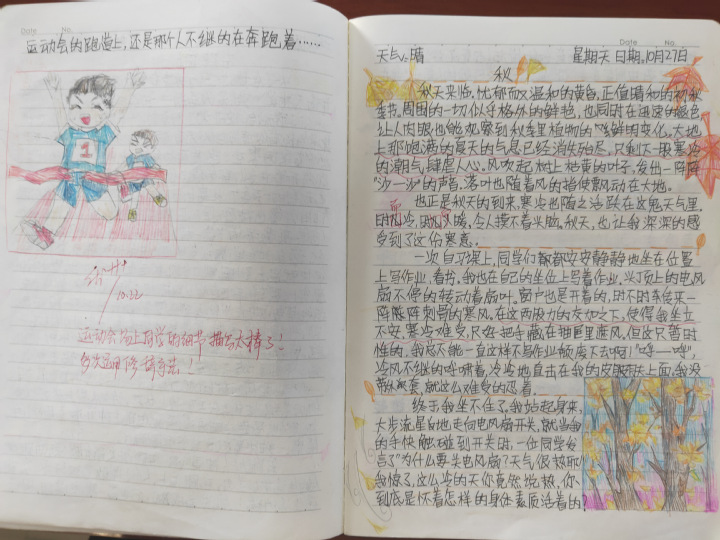 Date No.
运动会的跑道上,还是那个人不继的在奔跑着……
1
10.22
运动会场上同学的细节描写太棒了!
多次运用修辞手法!
Date No.
天气:晴 星期天 日期:10月27日
秋
秋天来临,忧郁而又温和的黄昏,正值晴和的初秋
季节。周围的一切似乎格外的鲜艳,也同时在迅速的褪色
让人肉眼也能观察到秋季里植物的鲜明变化。大地
上那饱满的夏天的气息已经消失殆尽,只剩下一股寒冷
的潮气,肆虐人心。风吹起树上枯黄的叶子,发出一阵阵
“沙—沙”的声音,落叶也随着风的指使飘动在大地。
也正是秋天的到来,寒冷也随之活跃在这鬼天气里。
时而冷,时而暖,令人摸不着头脑。秋天,也让我深深的感
受到了这份寒意。
一次自习课上,同学们都安安静静地坐在位置
上写作业,看书。我也在自己的坐位上写着作业,头顶上的电风
扇不停的转动着扇叶。窗户也是开着的,时不时会传来一
阵阵刺骨的寒风。在这两股力的交加之下,使得我坐立
不安,寒冷难受,只好把手藏在抽屉里避风。但这只暂时
性的,我总不能一直这样不写作业颓废下去啊!“呼—呼”,
冷风不继的呼啸着,冷冷地直击在我的皮肤上面,我没
带外套,就这么难受的忍着。
终于我坐不住了,我站起身来,
大步流星的地走向电风扇开关,就当我
的手快触碰到开关时,一位同学发
言了“为什么要关电风扇?天气很热耶”
我惊了,这么冷的天你竟然说热,你
到底是怀着怎样的身体素质活着的?